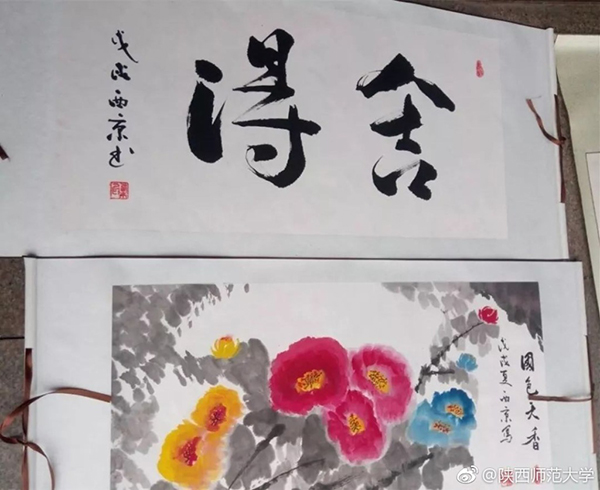 舍得
戊戌西京书
国色天香
戊戌夏西京写
@陕西师范大学